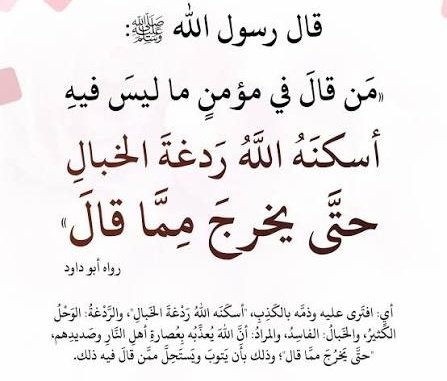 قال رسول الله ﷺ:
«مَن قالَ في مؤمنٍ ما ليسَ فيهِ
أسكنَهُ اللَّهُ رَدغةَ الخبالِ
حتَّى يخرجَ مِمَّا قالَ»
رواه أبو داود
أي: افتَرى عليه وذمَّه بالكَذِبِ، "أسكَنَه اللهُ رَدْغةَ الخَبالِ"، والرَّدْغةُ: الوَحْلُ
الكَثيرُ، والخَبالُ: الفاسِدُ، والمرادُ: أنَّ اللهَ يُعذِّبُه بعُصارةِ أهلِ النَّارِ وصَديدِهم،
"حتَّى يَخرُجَ ممَّا قال"؛ وذلك بأن يَتوبَ ويَستَحِلَّ ممَّن قالَ فيه ذلك.